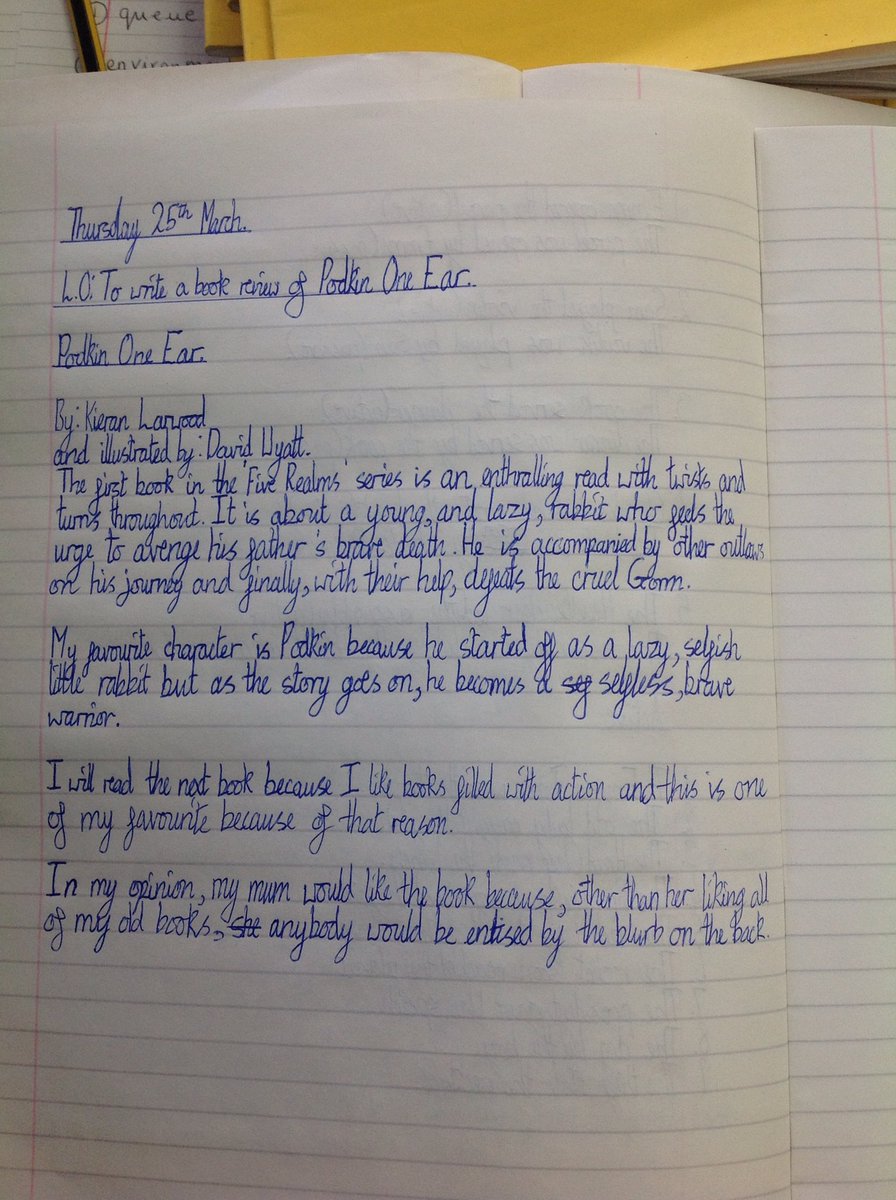 queue
environm
Thursday 25th March.
L.O: To write a book review of Podkin One Ear.
Podkin One Ear.
By: Kieran Larwood
and illustrated by: David Wyatt.
The first book in the 'Five Realms' series is an enthralling read with twists and
turns throughout. It is about a young, and lazy, rabbit who feels the
urge to avenge his father's brave death. He is accompanied by other outlaws
on his journey and finally, with their help, defeats the cruel Gorm.
My favourite character is Podkin because he started off as a lazy, selfish
little rabbit but as the story goes on, he becomes a sef selfless, brave
warrior.
I will read the next book because I like books filled with action and this is one
of my favourite because of that reason.
In my opinion, my mum would like the book because, other than her liking all
of my old books, she anybody would be entised by the blurb on the back.